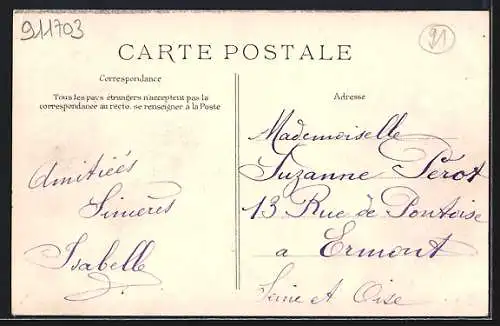 911703
91
CARTE POSTALE
Correspondance
Tous les pays étrangers n'acceptent pas la
correspondance au recto, se renseigner à la Poste
Adresse
Amitieés
Sinières
Isabelle
Mademoiselle
Suzanne Pérot
13 Rue de Pontoise
a Ermont
Seine et Oise